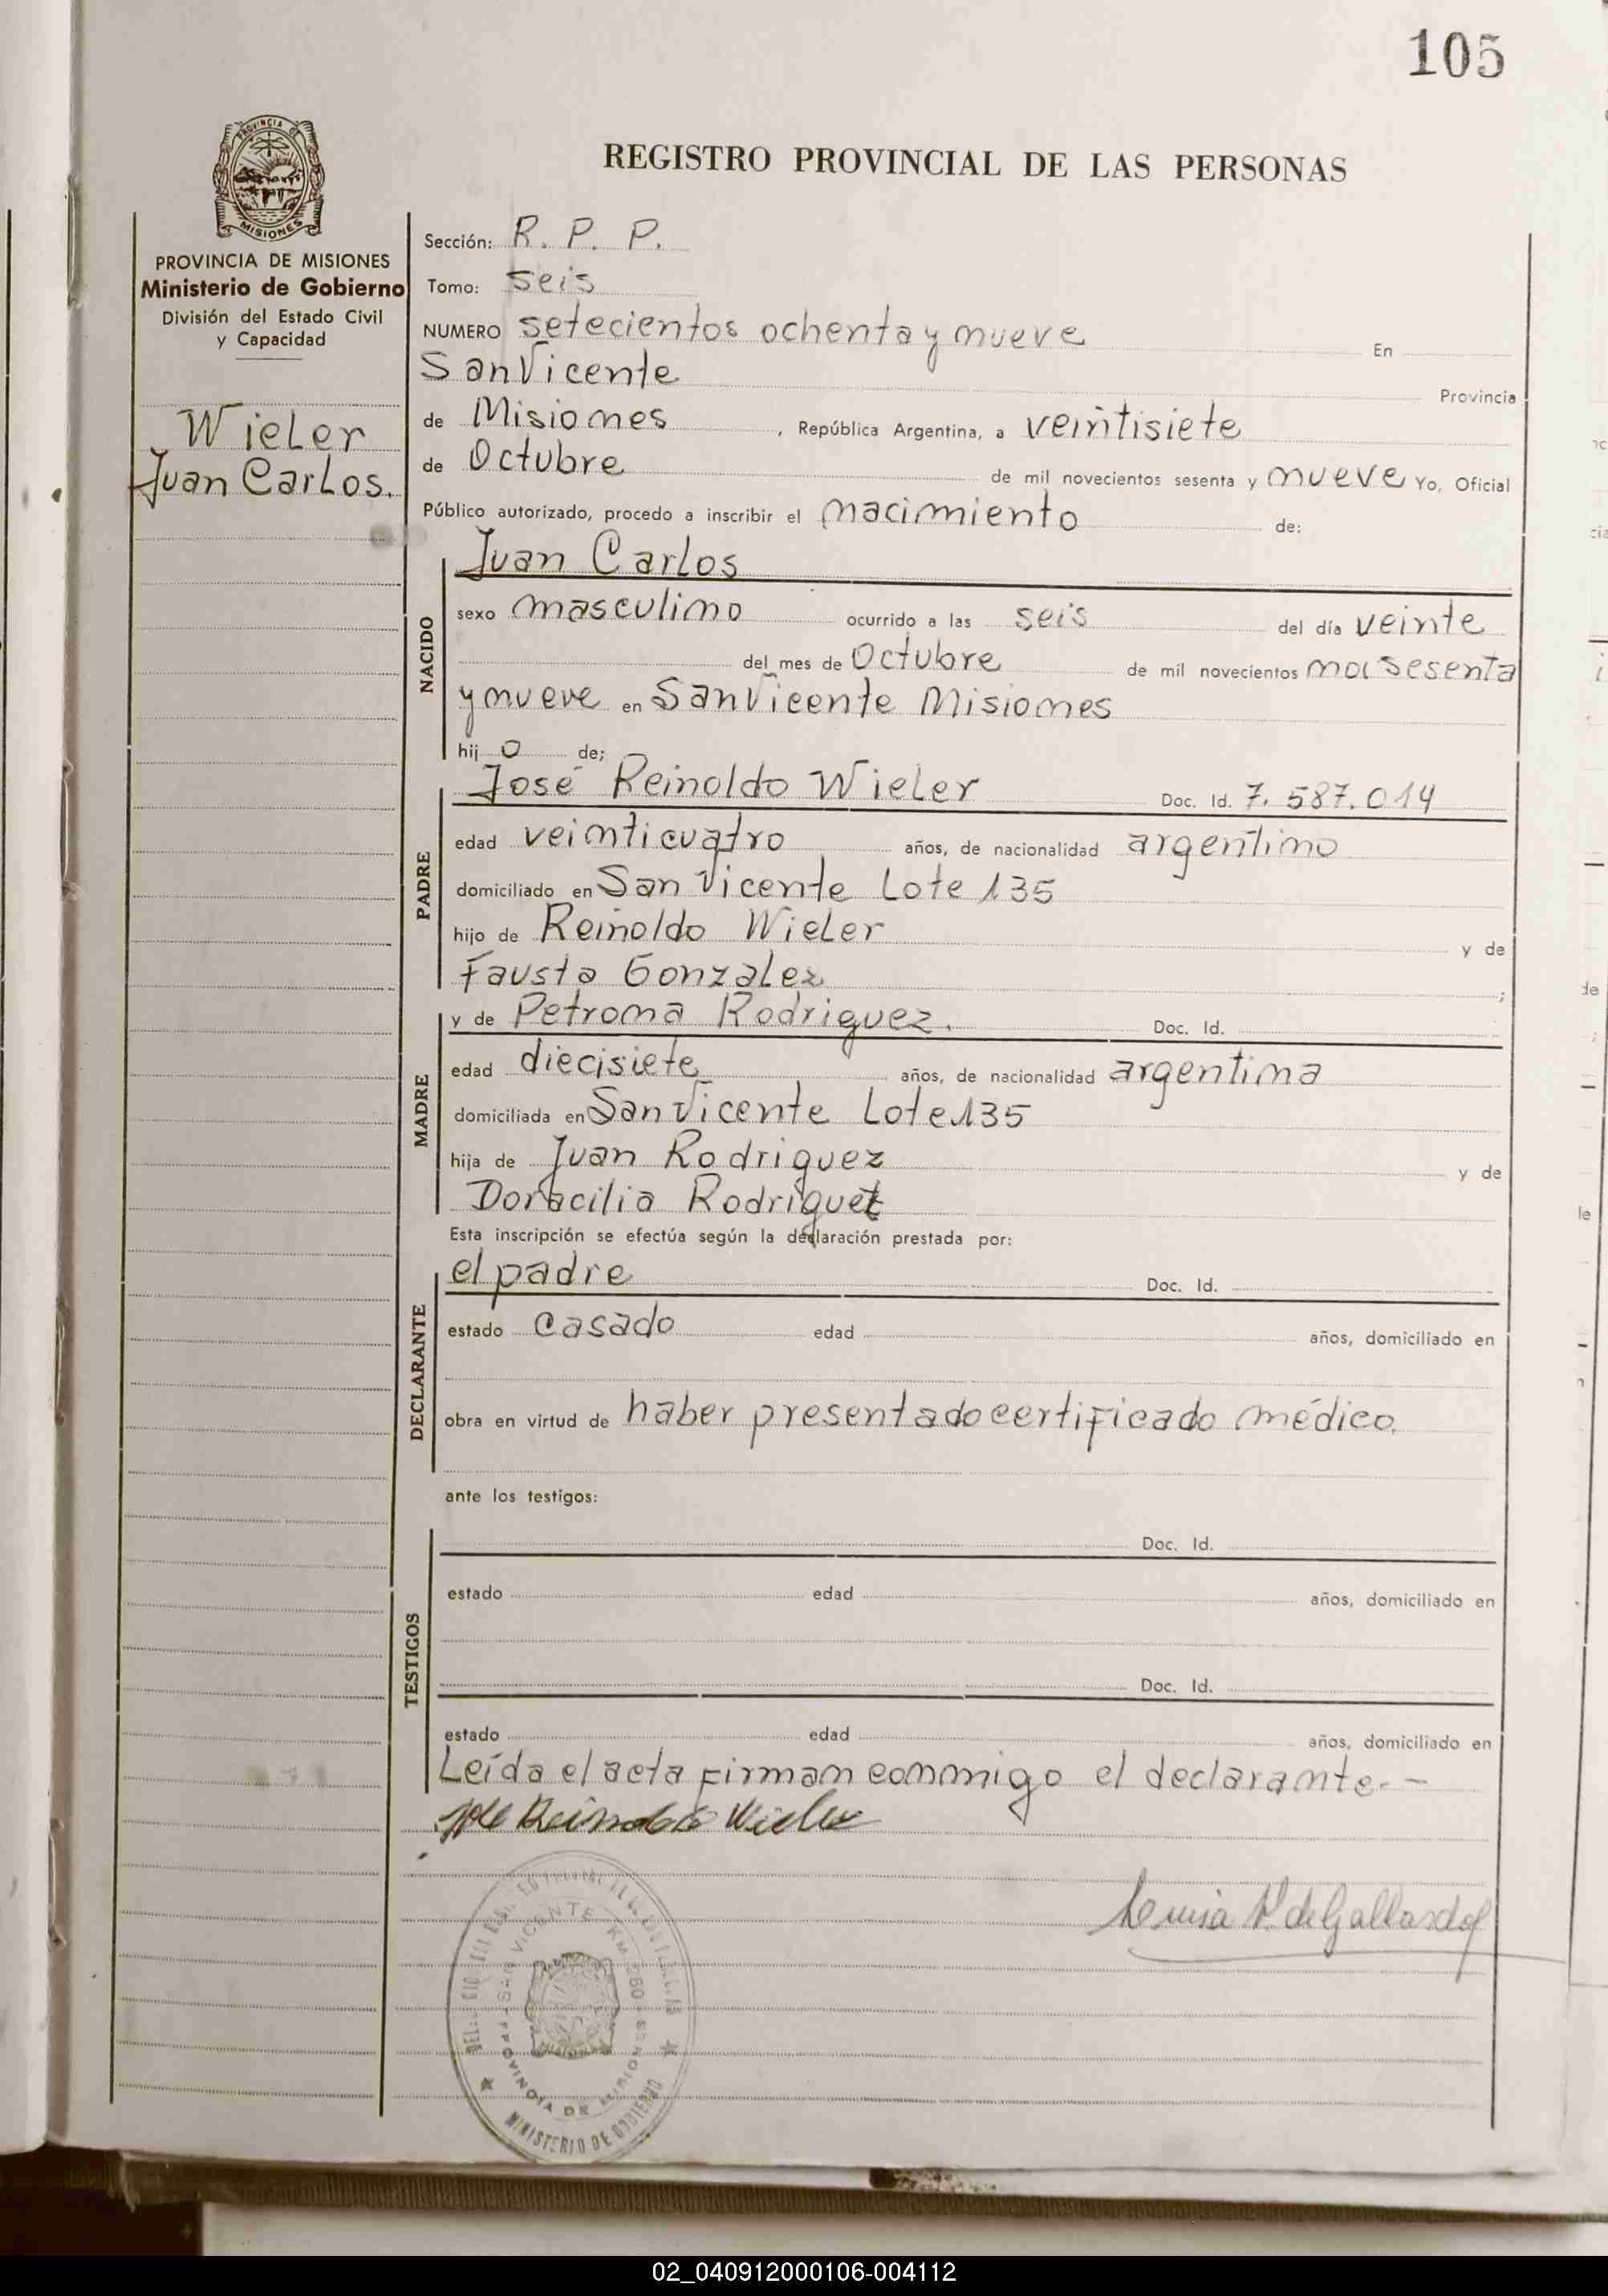 105
REGISTRO PROVINCIAL DE LAS PERSONAS
PROVINCIA DE
MISIONES
PROVINCIA DE MISIONES
Ministerio de Gobierno
División del Estado Civil
y Capacidad
Wieler
Juan Carlos.
Sección: R. P. P.
Tomo: seis
NUMERO setecientos ochenta y nueve En
San Vicente Provincia
de Misiones, República Argentina, a veintisiete
de Octubre de mil novecientos sesenta y nueve Yo, Oficial
Público autorizado, procedo a inscribir el nacimiento de:
NACIDO
Juan Carlos
sexo masculino ocurrido a las seis del día veinte
del mes de Octubre de mil novecientos sesenta
y nueve en San Vicente Misiones
hij o de;
PADRE
José Reinoldo Wieler Doc. Id. 7.587.014
edad veinticuatro años, de nacionalidad argentino
domiciliado en San Vicente Lote 135
hijo de Reinoldo Wieler y de
Fausta Gonzalez ;
MADRE
y de Petrona Rodriguez. Doc. Id.
edad diecisiete años, de nacionalidad argentina
domiciliada en San Vicente Lote 135
hija de Juan Rodriguez y de
Doracilia Rodriguez
Esta inscripción se efectúa según la declaración prestada por:
DECLARANTE
el padre Doc. Id.
estado casado edad años, domiciliado en
obra en virtud de haber presentado certificado médico.
ante los testigos:
TESTIGOS
Doc. Id.
estado edad años, domiciliado en
Doc. Id.
estado edad años, domiciliado en
Leída el acta firman conmigo el declarante. -
José Reinoldo Wieler
de Gallardo
SAN VICENTE KM 260
PROVINCIA DE MISIONES
MINISTERIO DE GOBIERNO
02_040912000106-004112